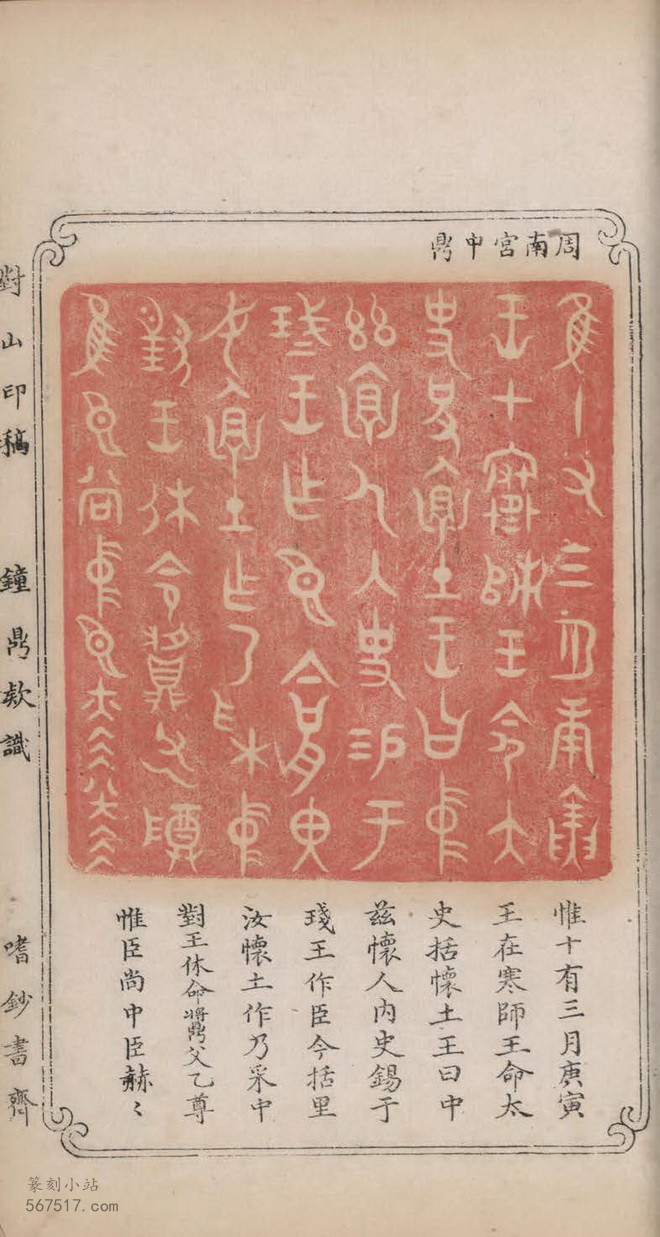 周南宮中鼎
惟十有三月庚寅
王在寒師王命太
史括懷土王曰中
茲懷人內史錫于
珷王作臣今括里
汝懷土作乃采中
對王休命𪔉父乙尊
惟臣尚中臣赫〻
對山印稿 鐘鼎欵識 嗜鈔書齋
篆刻小站
567517.com